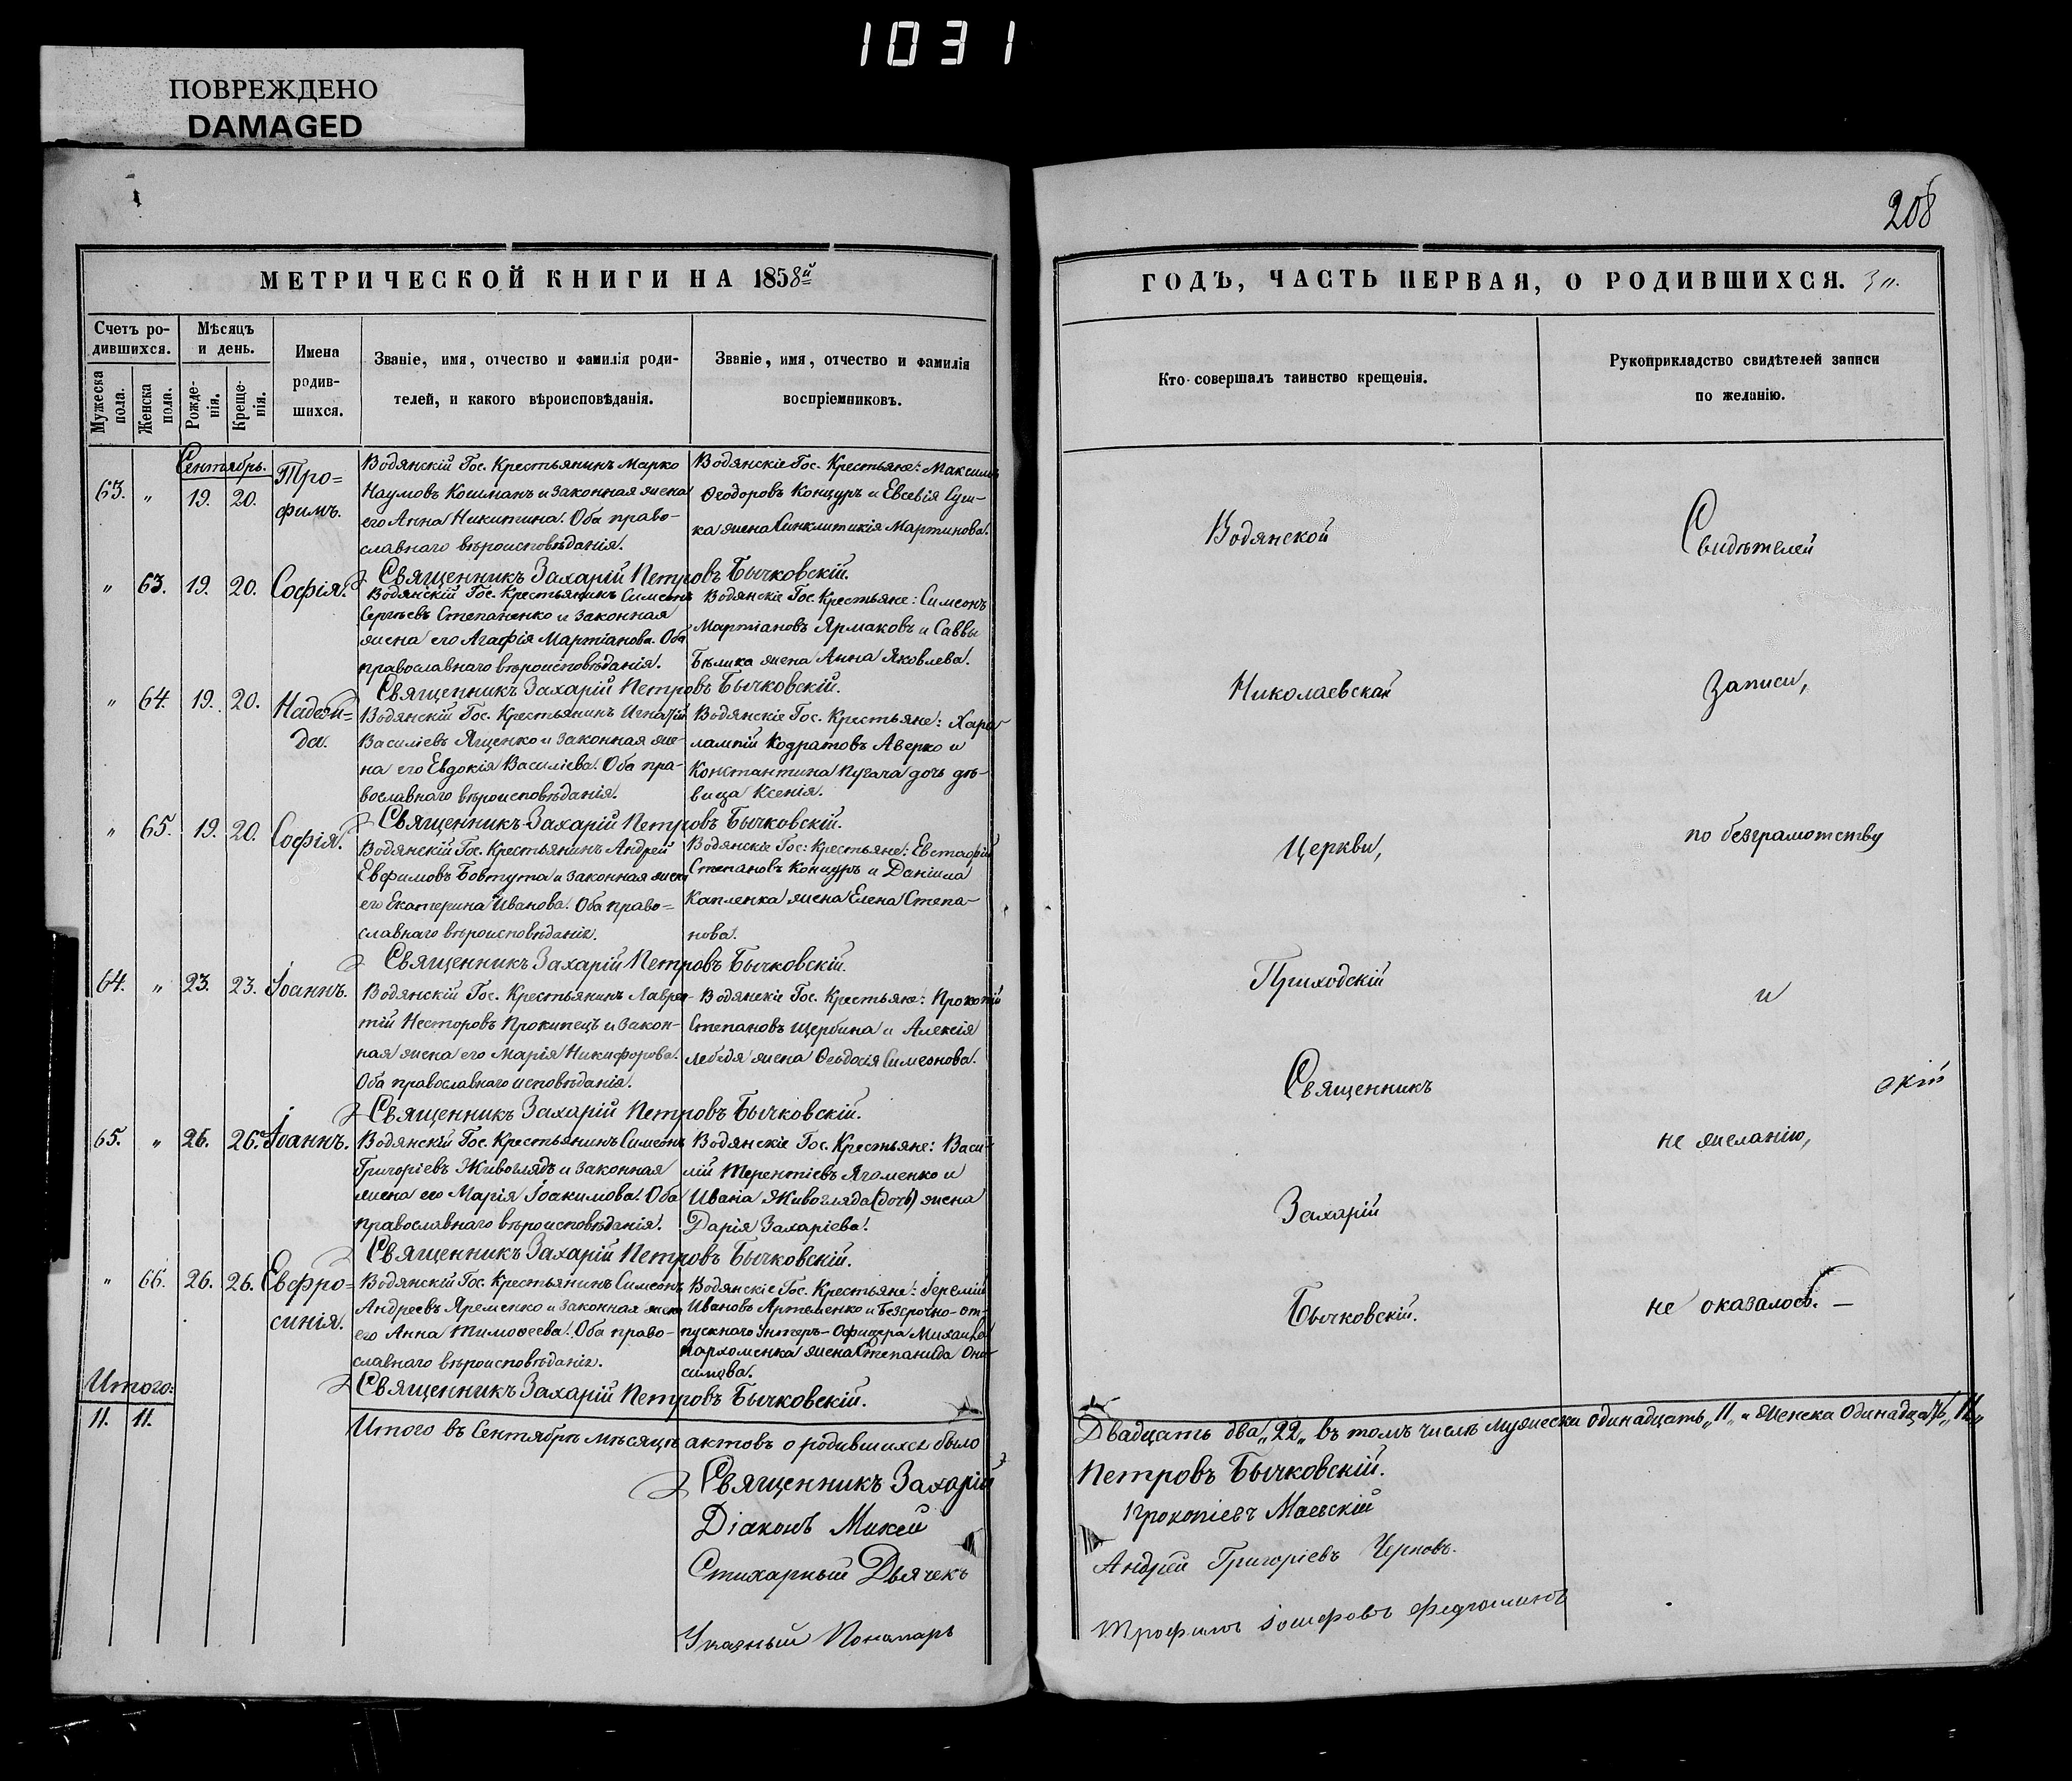 1031
ПОВРЕЖДЕНО
DAMAGED
208
МЕТРИЧЕСКОЙ КНИГИ НА 1858й
Счетъ ро-
дившихся.
Мужеска
пола.
Женска
пола.
Мѣсяцъ
и день.
Рожде-
нія.
Креще-
нія.
Имена
родив-
шихся.
Званіе, имя, отчество и фамилія роди-
телей, и какого вѣроисповѣданія.
Званіе, имя, отчество и фамилія
воспріемниковъ.
Сентябрь.
63. " 19. 20.
Тро=
фимъ.
Водянскій Гос. Крестьянинъ Марко
Наумовъ Кошманъ и законная жена
его Анна Никитина. Оба право-
славнаго вѣроисповѣданія.
Водянскіе Гос. Крестьяне: Максимъ
Ѳеодоровъ Концуръ и Евсевія Суш-
ка жена Синклитикія Мартинова.
Священникъ Захарій Петровъ Бычковскій.
" 63. 19. 20. Софія.
Водянскій Гос. Крестьянинъ Симеонъ
Сергѣевъ Степаненко и законная
жена его Агафія Мартіанова. Оба
православнаго вѣроисповѣданія.
Водянскіе Гос. Крестьяне: Симеонъ
Мартіановъ Ярмаковъ и Саввы
Бѣлика жена Анна Яковлева.
Священникъ Захарій Петровъ Бычковскій.
" 64. 19. 20.
Надеж=
да.
Водянскій Гос. Крестьянинъ Игнатій
Василіевъ Яценко и законная же-
на его Евдокія Василіева. Оба пра-
вославнаго вѣроисповѣданія.
Водянскіе Гос. Крестьяне: Хара-
лампій Кодратовъ Аверко и
Константина Пугача дочь дѣ-
вица Ксенія.
Священникъ Захарій Петровъ Бычковскій.
" 65. 19. 20. Софія.
Водянскій Гос. Крестьянинъ Андрей
Евфимовъ Бовтута и законная жена
его Екатерина Иванова. Оба право=
славнаго вѣроисповѣданія.
Водянскіе Гос: Крестьяне: Евстафій
Степановъ Концуръ и Даніила
Капленка жена Елена Степа-
нова.
Священникъ Захарій Петровъ Бычковскій.
64. " 23. 23. Іоаннъ.
Водянскій Гос. Крестьянинъ Лаврен-
тій Несторовъ Прокипецъ и закон-
ная жена его Марія Никифорова.
Оба православнаго исповѣданія.
Водянскіе Гос. Крестьяне: Прокопій
Степановъ Щербина и Алексія
Лебедя жена Ѳеодосія Симеонова.
Священникъ Захарій Петровъ Бычковскій.
65. " 26. 26. Іоаннъ.
Водянскій Гос. Крестьянинъ Симеонъ
Григоріевъ Живоглядъ и законная
жена его Марія Іоакимова. Оба
православнаго вѣроисповѣданія.
Водянскіе Гос. Крестьяне: Васи-
лій Терентіевъ Ягоменко и
Ивана Живогляда (дочь) жена
Дарія Захаріева.
Священникъ Захарій Петровъ Бычковскій.
" 66. 26. 26.
Евфро=
синія.
Водянскій Гос. Крестьянинъ Симеонъ
Андреевъ Яременко и законная жена
его Анна Тимоѳеева. Оба право-
славнаго вѣроисповѣданія.
Водянскіе Гос. Крестьяне: Іеремій
Ивановъ Артеменко и безсрочно-от-
пускнаго Унтеръ-Офицера Михаила
Пархоменка жена Степанида Они-
симова.
Священникъ Захарій Петровъ Бычковскій.
Итого:
11. 11.
Итого въ Сентябрѣ мѣсяцѣ актовъ о родившихся было
Священникъ Захарій
Діаконъ
Стихарный Дьячекъ
Указный Пономарь
ГОДЪ, ЧАСТЬ ПЕРВАЯ, О РОДИВШИХСЯ.
Кто совершалъ таинство крещенія.
Рукоприкладство свидѣтелей записи
по желанію.
Водянской
Николаевской
Церкви,
Приходскій
Священникъ
Захарій
Бычковскій.
Свидѣтелей
Записи,
по безграмотству
и
не желанію,
не оказалось. —
Двадцать два „22„ въ томъ числѣ мужеска одинадцать „11„ и женска одинадцать „11„
Петровъ Бычковскій.
Прокопіевъ Маевскій
Андрей Григоріевъ Черновъ.
Трофимъ Іосифовъ